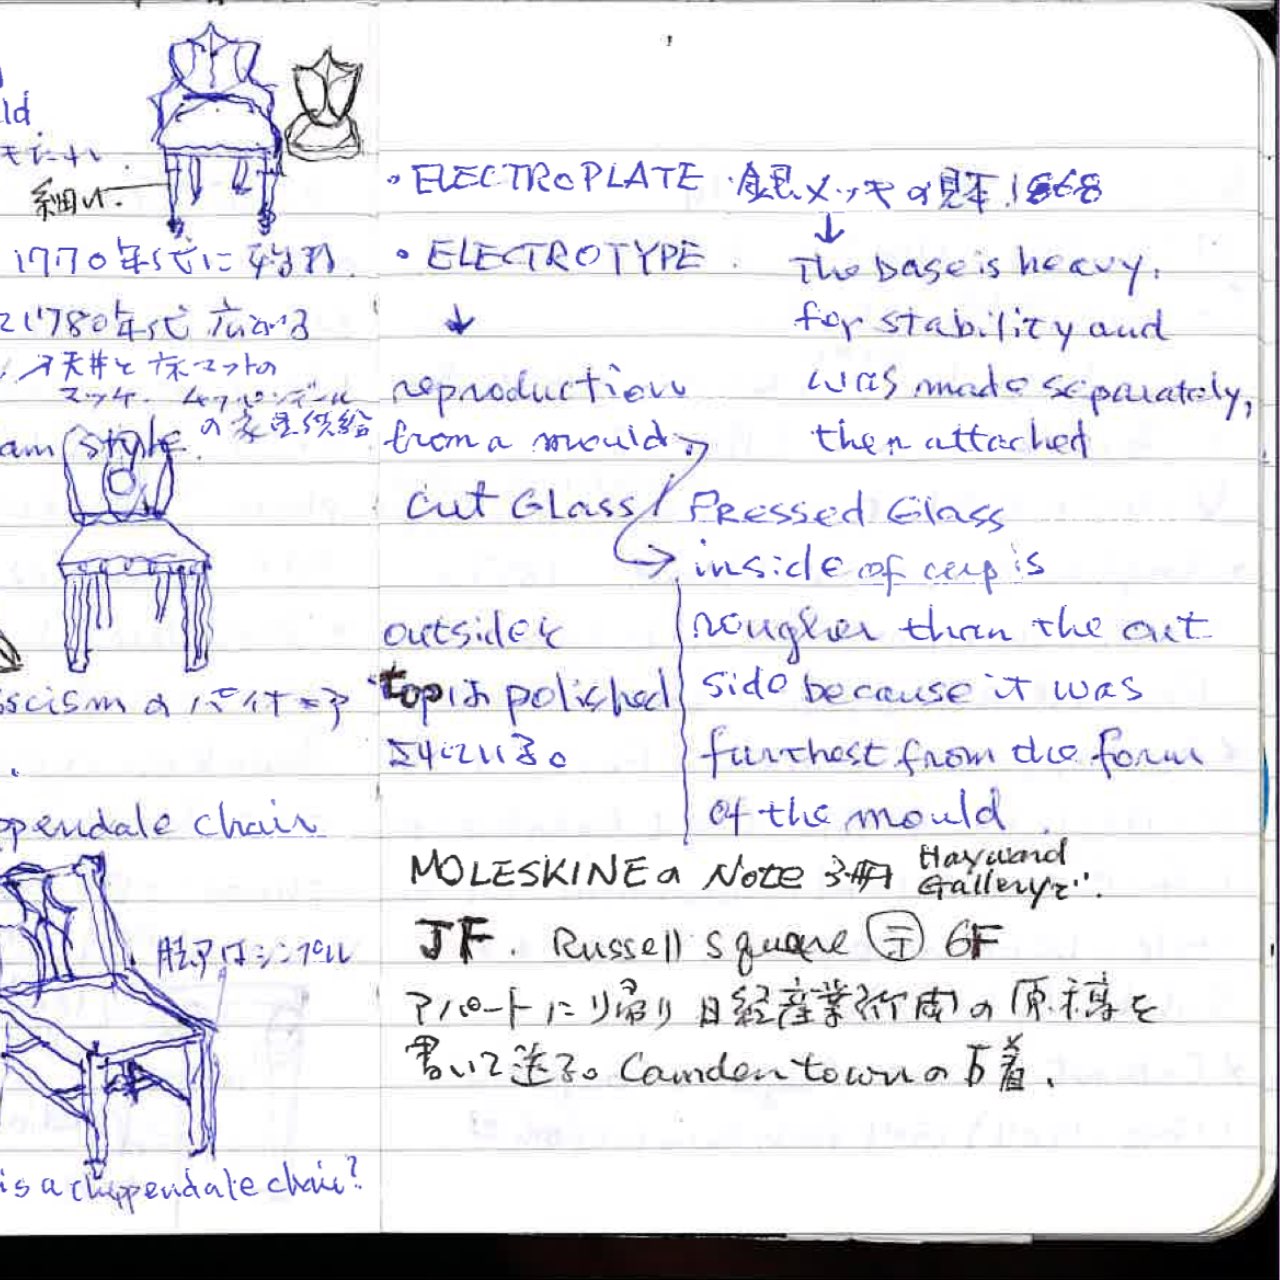 ld.
細い.
1770年代に始まり.
1780年代 広がる
天井と床マットの
マッチ. チッペンデール
の家具供給
am style.
scismのパイオニア
ppendale chair
脚はシンプル
is a chippendale chair?
・ELECTROPLATE 銀メッキの見本.1868
↓
The base is heavy,
for stability and
was made separately,
then attached
・ELECTROTYPE.
↓
reproduction
from a mould
Cut Glass
outsideと
topは polished
されている。
Pressed Glass
inside of cup is
rougher than the out
side because it was
furthest from the form
of the mould.
MOLESKINEの Note 3冊 Hayward
Galleryで.
JF. Russell square 6F
アパートに帰り 日経産業新聞の原稿を
書いて送る。Camden townの古着.